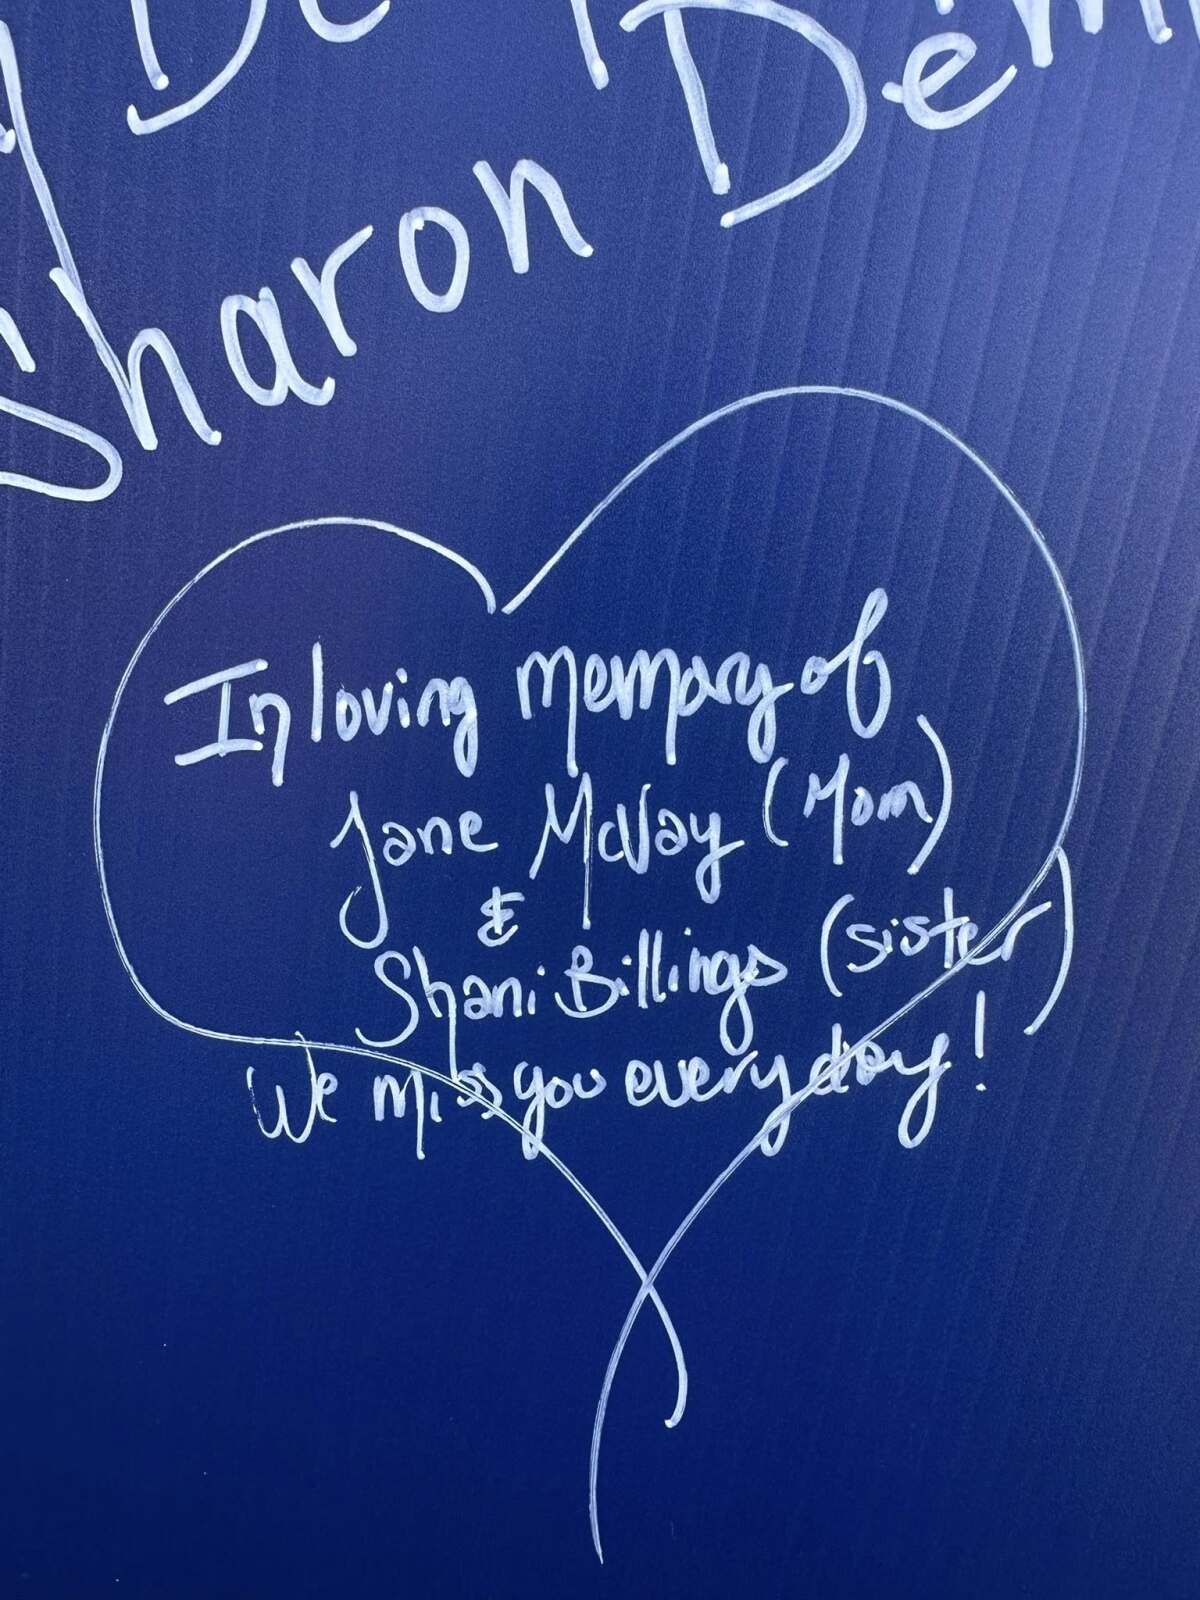 Sharon
In loving memory of
Jane McVay (Mom)
&
Shani Billings (sister)
We miss you every day!